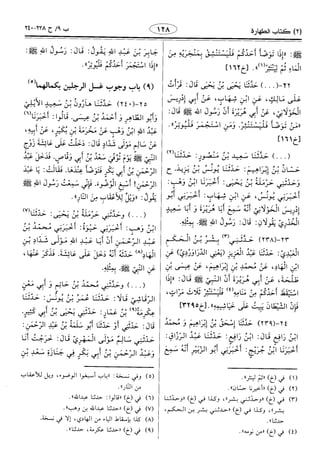 (٢) كتاب الطهارة
١٢٨
ب ٩/ح ٢٢٨-٢٤٠
«إِذَا تَوَضَّأَ أَحَدُكُمْ فَلْيَسْتَنْشِقْ بِمَنْخِرَيْهِ مِنَ
الْمَاءِ ثُمَّ لْيَنْتَثِرْ»(١). [خ١٦٢]
٢٢-(...) حَدَّثَنَا يَحْيَى بْنُ يَحْيَى قَالَ: قَرَأْتُ
عَلَى مَالِكٍ، عَنِ ابْنِ شِهَابٍ، عَنْ أَبِي إِدْرِيسَ
الْخَوْلَانِيِّ، عَنْ أَبِي هُرَيْرَةَ أَنَّ رَسُولَ اللهِ ﷺ قَالَ:
«مَنْ تَوَضَّأَ فَلْيَسْتَنْثِرْ. وَمَنِ اسْتَجْمَرَ فَلْيُوتِرْ».
[خ١٦١]
(...) حَدَّثَنَا سَعِيدُ بْنُ مَنْصُورٍ: حَدَّثَنَا(٢)
حَسَّانُ بْنُ إِبْرَاهِيمَ: حَدَّثَنَا يُونُسُ بْنُ يَزِيدَ. ح
وَحَدَّثَنِي حَرْمَلَةُ بْنُ يَحْيَى: أَخْبَرَنَا ابْنُ وَهْبٍ:
أَخْبَرَنِي يُونُسُ، عَنِ ابْنِ شِهَابٍ: أَخْبَرَنِي أَبُو
إِدْرِيسَ الْخَوْلَانِيُّ أَنَّهُ سَمِعَ أَبَا هُرَيْرَةَ وَأَبَا سَعِيدٍ
الْخُدْرِيَّ يَقُولَانِ: قَالَ رَسُولُ اللهِ ﷺ. بِمِثْلِهِ.
٢٣-(٢٣٨) حَدَّثَنِي(٣) بِشْرُ بْنُ الْحَكَمِ
الْعَبْدِيُّ: حَدَّثَنَا عَبْدُ الْعَزِيزِ (يَعْنِي الدَّرَاوَرْدِيَّ) عَنِ
ابْنِ الْهَادِ، عَنْ مُحَمَّدِ بْنِ إِبْرَاهِيمَ، عَنْ عِيسَى بْنِ
طَلْحَةَ، عَنْ أَبِي هُرَيْرَةَ أَنَّ النَّبِيَّ ﷺ قَالَ: «إِذَا
اسْتَيْقَظَ أَحَدُكُمْ مِنْ مَنَامِهِ(٤) فَلْيَسْتَنْثِرْ ثَلَاثَ مَرَّاتٍ.
فَإِنَّ الشَّيْطَانَ يَبِيتُ عَلَى خَيَاشِيمِهِ». [خ٣٢٩٥]
٢٤-(٢٣٩) حَدَّثَنَا إِسْحَقُ بْنُ إِبْرَاهِيمَ وَمُحَمَّدُ
ابْنُ رَافِعٍ. قَالَ: ابْنُ رَافِعٍ: حَدَّثَنَا عَبْدُ الرَّزَّاقِ:
أَخْبَرَنَا ابْنُ جُرَيْجٍ: أَخْبَرَنِي أَبُو الزُّبَيْرِ أَنَّهُ سَمِعَ
جَابِرَ بْنَ عَبْدِ اللهِ يَقُولُ: قَالَ: رَسُولُ اللهِ ﷺ:
«إِذَا اسْتَجْمَرَ أَحَدُكُمْ فَلْيُوتِرْ».
(٩) باب وجوب غسل الرجلين بكمالهما(٥)
٢٥-(٢٤٠) حَدَّثَنَا هَارُونُ بْنُ سَعِيدٍ الْأَيْلِيُّ
وَأَبُو الطَّاهِرِ وَأَحْمَدُ بْنُ عِيسَى. قَالُوا: أَخْبَرَنَا(٦)
عَبْدُ اللهِ بْنُ وَهْبٍ عَنْ مَخْرَمَةَ بْنِ بُكَيْرٍ، عَنْ أَبِيهِ،
عَنْ سَالِمٍ مَوْلَى شَدَّادٍ قَالَ: دَخَلْتُ عَلَى عَائِشَةَ زَوْجِ
النَّبِيِّ ﷺ يَوْمَ تُوُفِّيَ سَعْدُ بْنُ أَبِي وَقَّاصٍ. فَدَخَلَ عَبْدُ
الرَّحْمٰنِ بْنُ أَبِي بَكْرٍ فَتَوَضَّأَ عِنْدَهَا. فَقَالَتْ: يَا عَبْدَ
الرَّحْمٰنِ! أَسْبِغِ الْوُضُوءَ. فَإِنِّي سَمِعْتُ رَسُولَ اللهِ ﷺ
يَقُولُ: «وَيْلٌ لِلْأَعْقَابِ مِنَ النَّارِ».
(...) وَحَدَّثَنِي حَرْمَلَةُ بْنُ يَحْيَى: حَدَّثَنَا(٧)
ابْنُ وَهْبٍ: أَخْبَرَنِي حَيْوَةُ: أَخْبَرَنِي مُحَمَّدُ بْنُ
عَبْدِ الرَّحْمٰنِ أَنَّ أَبَا عَبْدِ اللهِ مَوْلَى شَدَّادِ بْنِ
الْهَادِ(٨) حَدَّثَهُ أَنَّهُ دَخَلَ عَلَى عَائِشَةَ. فَذَكَرَ عَنْهَا،
عَنِ النَّبِيِّ ﷺ بِمِثْلِهِ.
(...) وَحَدَّثَنِي مُحَمَّدُ بْنُ حَاتِمٍ وَأَبُو مَعْنٍ
الرَّقَاشِيُّ قَالَا: حَدَّثَنَا عُمَرُ بْنُ يُونُسَ: حَدَّثَنَا
عِكْرِمَةُ(٩) بْنُ عَمَّارٍ: حَدَّثَنِي يَحْيَى بْنُ أَبِي كَثِيرٍ.
قَالَ: حَدَّثَنِي أَوْ حَدَّثَنَا أَبُو سَلَمَةَ بْنُ عَبْدِ الرَّحْمٰنِ:
حَدَّثَنِي سَالِمٌ مَوْلَى الْمَهْرِيِّ قَالَ: خَرَجْتُ أَنَا
وَعَبْدُ الرَّحْمٰنِ بْنُ أَبِي بَكْرٍ فِي جَنَازَةِ سَعْدِ بْنِ
(١) في (خ) «ثم لينثر».
(٢) في (خ) «أخبرنا حسان».
(٣) في (خ) «وحدثني بشر»،
(٤) في (خ) «من نومه».
(٥) وفي نسخة: «باب أسبغوا الوضوء، ويل للأعقاب
من النار».
(٦) في (خ) «قالوا: حدثنا عبدالله».
(٧) في (خ) «حدثنا عبدالله بن وهب».
(٨) كذا بإسقاط الياء من الهادي،
(٩) في (خ) «حدثنا عكرمة، حدثنا».